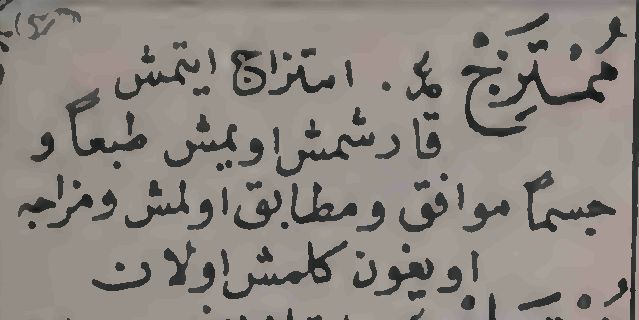 مُمْتَزِجْ عد. امتزاج ایتمش
قارشمش اویمش طبعاً و
جسماً موافق و مطابق اولمش و مزاجه
اویغون کلمش اولان